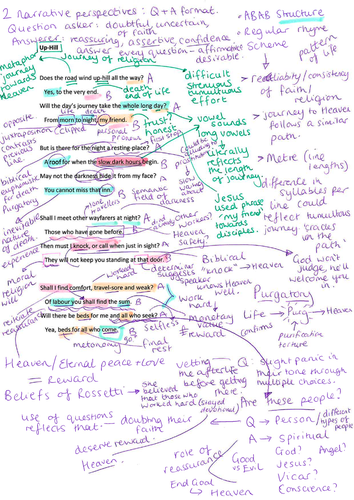 2 narrative perspectives : Q + A format.
Question asker: doubtful, uncertain, of faith
Answerer: reassuring, assertive, confidence
answer every question - affirmative
desirable.
→ ABAB Structure
• Regular rhyme Scheme
pattern of life
> reliability/consistency of faith/religion
> journey to Heaven follows a similar path.
> Metre (line lengths)
Difference in syllables per line could reflect tumultuous journey 'cracks in the path'
metaphor journey towards Heaven
Up-Hill
→ Journey of religion
Does the road wind up-hill all the way? A
Yes, to the very end. B
death/end of life
Will the day's journey take the whole long day? A
From morn to night, my friend. B
difficult
strenuous
tumultuous
effort
opposite
juxtaposition
contrasts previous line.
clipped
personal pronoun
trust
honest
vowel sounds
long vowels
literally reflects the length of journey.
But is there for the night a resting-place? A
A roof for when the slow dark hours begin. B
May not the darkness hide it from my face? A
You cannot miss that inn. B
Biblical
euphemism for death
Purgatory
semantic field of darkness
Jesus used phrase 'my friend' towards disciples.
inevitable nature of death
experience
Shall I meet other wayfarers at night? A
Those who have gone before. B
Then must I knock, or call when just in sight? A
They will not keep you standing at that door. B
Heaven, safety.
determiner
Speaker knows Heaven well.
Biblical "knock" → Heaven
God won't judge, he'll welcome you in.
moral religion
reward
Shall I find comfort, travel-sore and weak? A
Of labour you shall find the sum. B
Will there be beds for me and all who seek? A
Yea, beds for all who come. B
work hard
monetary value
reward
Purgatory
Life → Purg → Heaven
confirms
purification
torture
metonomy
final rest
Selfless
Heaven/Eternal peace + love
= Reward
Beliefs of Rossetti → She believed that those who worked hard (stayed devotional) deserve reward.
Heaven.
vetting the afterlife before getting there.
Q: slight panic in their tone through multiple choices.
Are these people?
use of questions reflects that: doubting their faith
Q → Person / different types of people
A → Spiritual
God? Angel?
Jesus?
Vicar?
Conscience?
role of reassurance
Good vs Evil
End Goal
→ Heaven